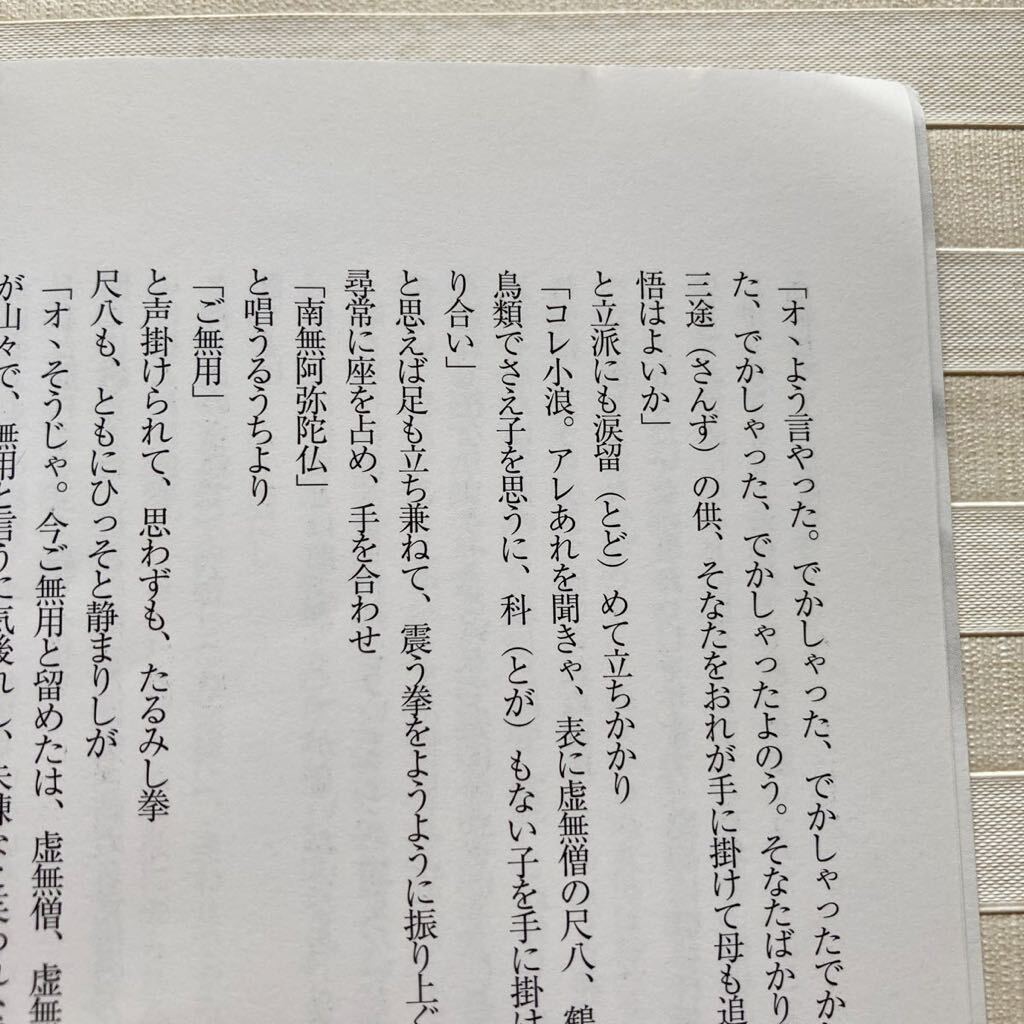 「オヽよう言やった。でかしゃった、でかしゃったでか
た、でかしゃった、でかしゃったよのう。そなたばかり
三途（さんず）の供、そなたをおれが手に掛けて母も追
悟はよいか」
と立派にも涙留（とど）めて立ちかかり
「コレ小浪。アレあれを聞きゃ、表に虚無僧の尺八、鶴
鳥類でさえ子を思うに、科（とが）もない子を手に掛け
り合い」
と思えば足も立ち兼ねて、震う拳をようように振り上ぐ
尋常に座を占め、手を合わせ
「南無阿弥陀仏」
と唱うるうちより
「ご無用」
と声掛けられて、思わずも、たるみし拳
尺八も、ともにひっそと静まりしが
「オヽそうじゃ。今ご無用と留めたは、虚無僧、虚無
が山々で、無用と言うに気後れし、未練な